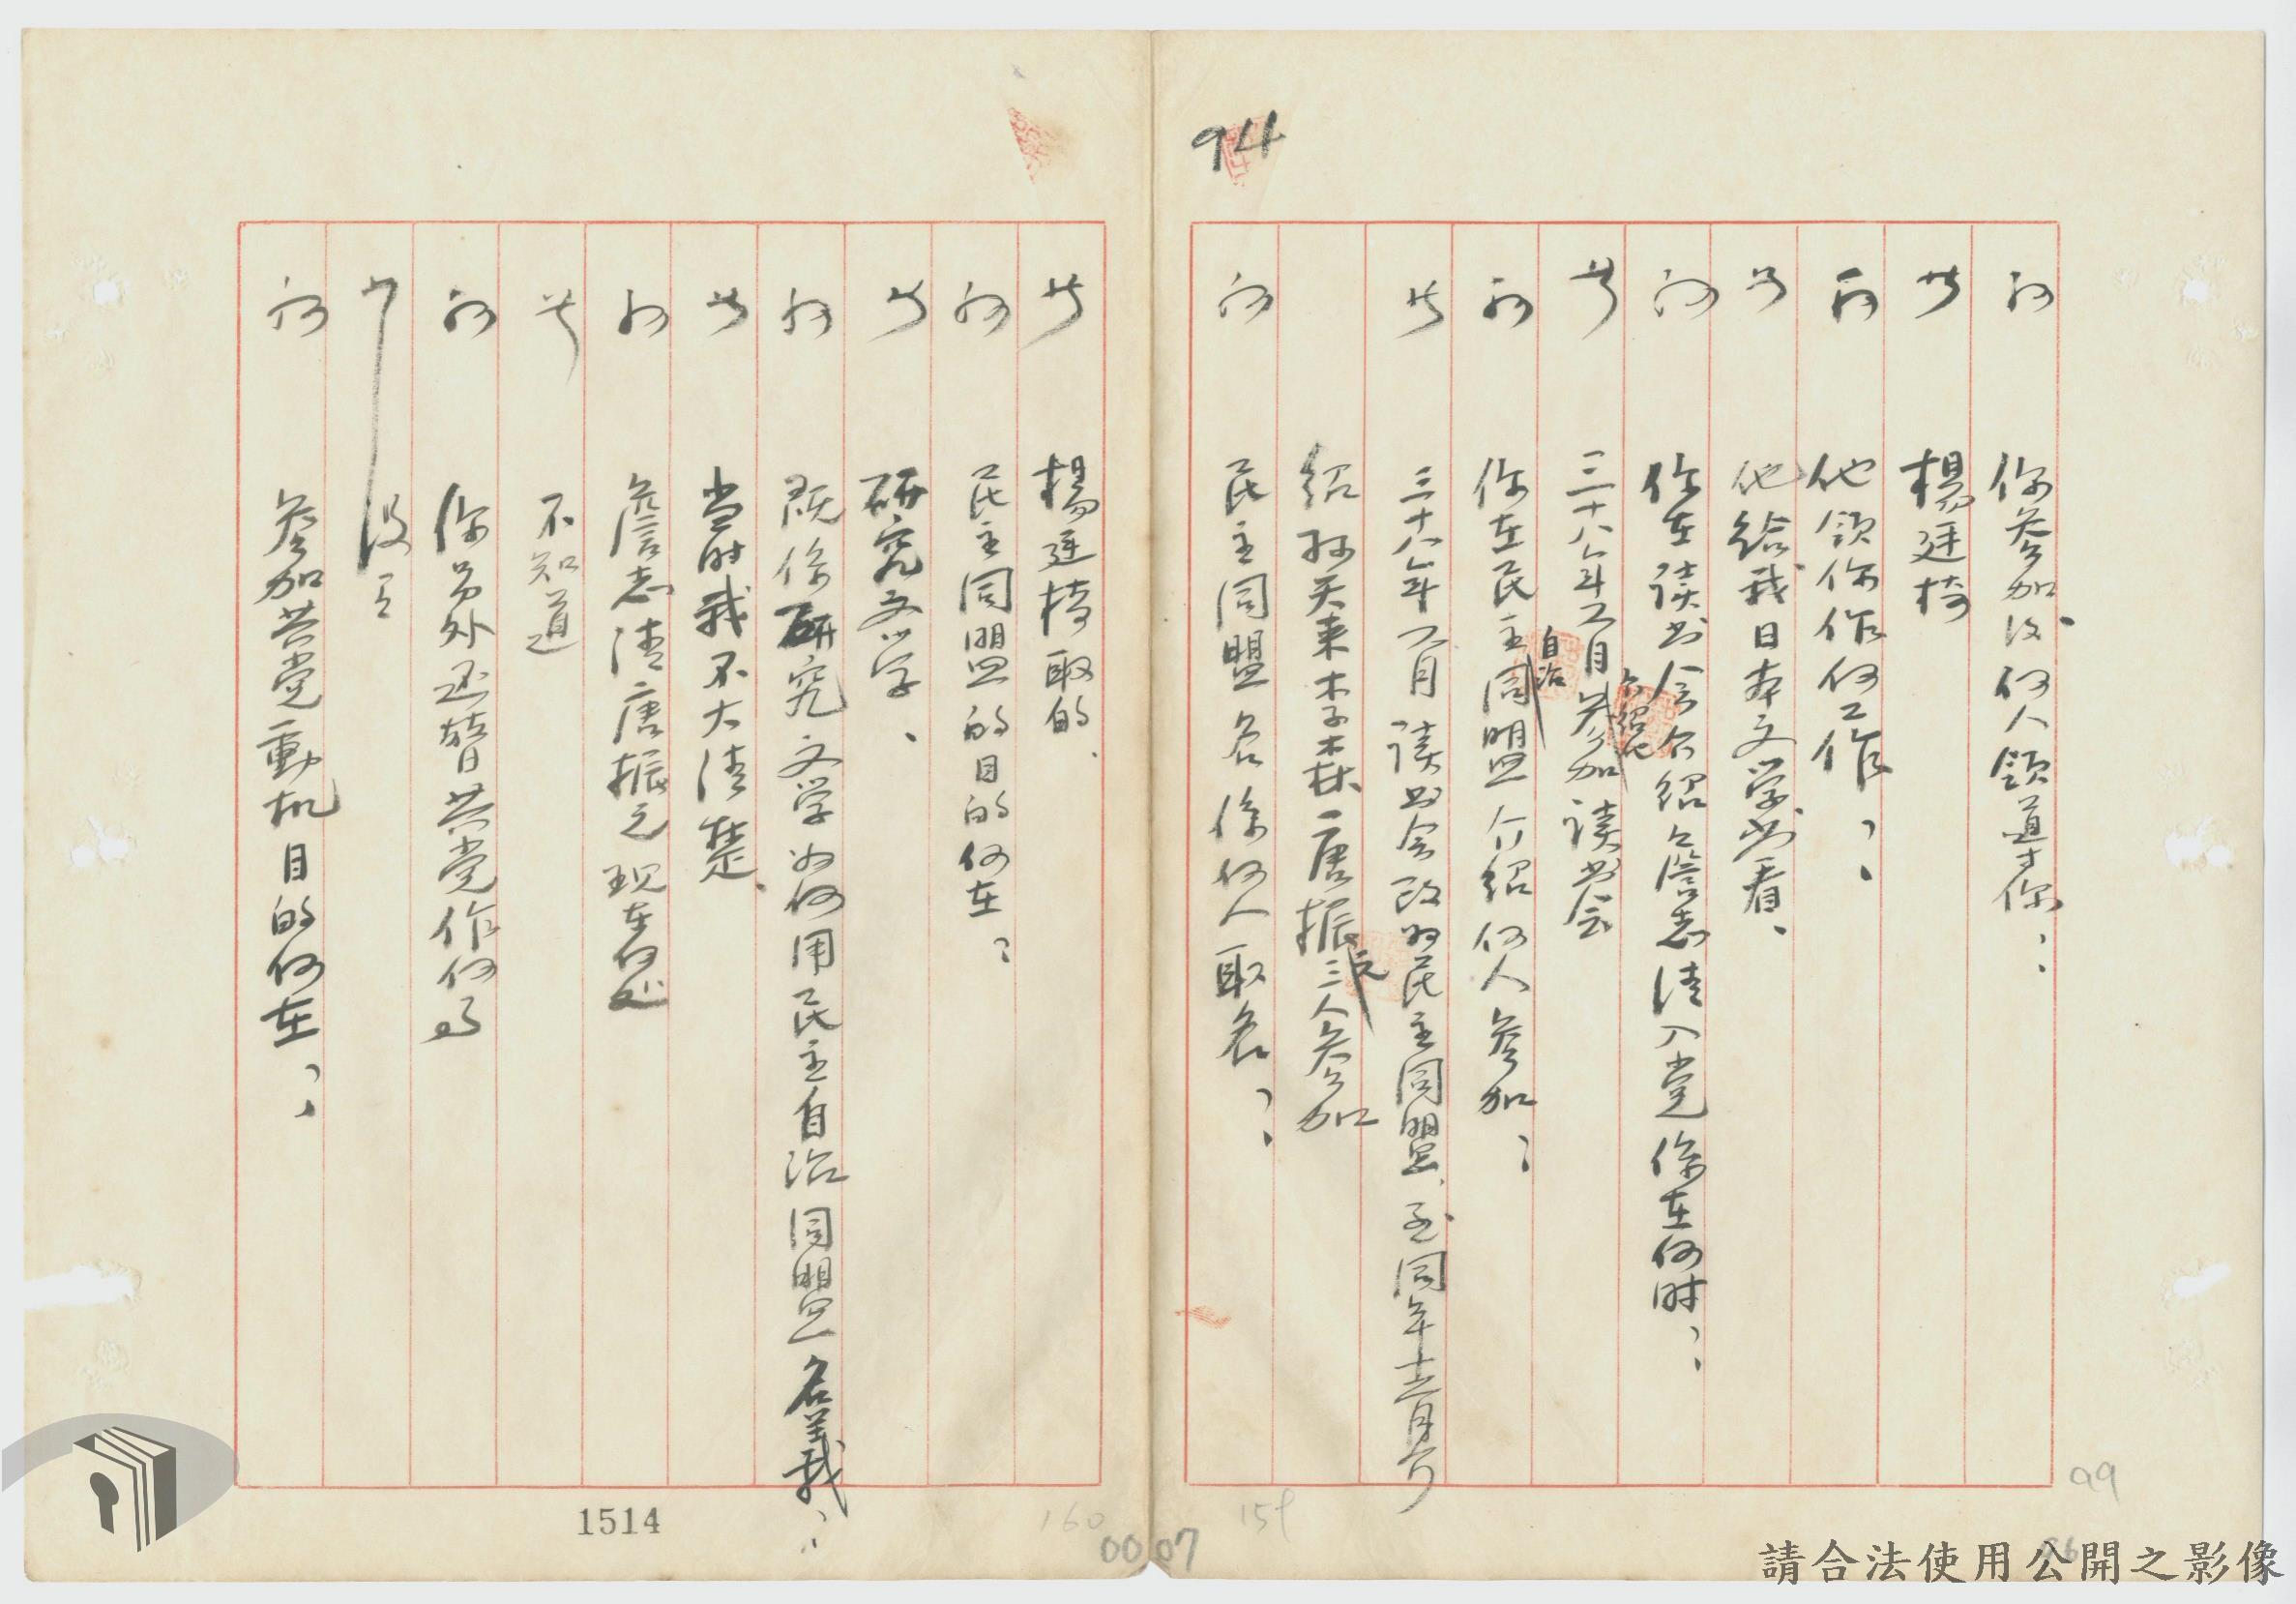 94
問 你參加後何人領導你？
答 楊廷椅
問 他領你作何工作？
答 他給我日本文学书看、
問 你在读书会介紹介紹他詹志清入党係在何时？
答 三十八年 月參加读书会
問 你在民主自治同盟介紹何人參加？
答 三十八年 月读书会改为民主同盟、至同年十二月介
紹孫天来李森唐振元三人參加
問 民主同盟名係何人取名？
答 楊廷椅取的、
問 民主同盟的目的何在？
答 研究文学、
問 既係研究文学为何用民主自治同盟名義？
答 当时我不大清楚、
問 詹志清唐振元现在何处
答 不知道
問 你另外还替共党作何事
答 没有
問 參加共党動机目的何在？
1514
160
159
0007
99
96
請合法使用公開之影像